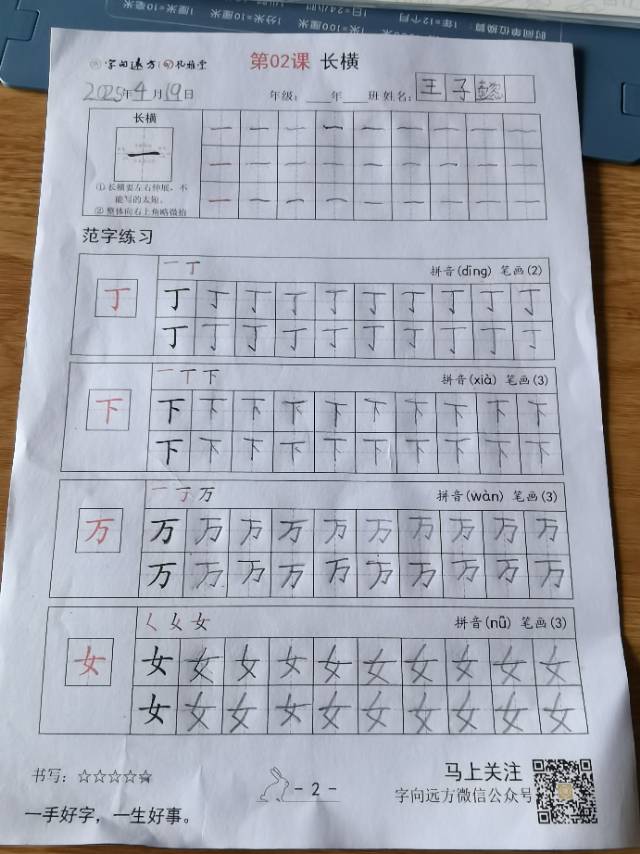 时间单位换算
1年=12个月
1日=24小时
1分米=10厘米
1厘米=10毫米
字向远方
第02课 长横
2025年4月19日 年级：___年___班 姓名：王子懿
长横
一
①长横要左右伸展，不
能写的太短。
②整体向右上角略微抬
一 一 一 一 一 一 一 一 一
一 一 一 一 一 一 一 一 一
一 一 一 一 一 一 一 一 一
范字练习
一 丁 拼音(dīng) 笔画(2)
丁
丁 丁 丁 丁 丁 丁 丁 丁 丁 丁
丁 丁 丁 丁 丁 丁 丁 丁 丁 丁
一 丅 下 拼音(xià) 笔画(3)
下
下 下 下 下 下 下 下 下 下 下
下 下 下 下 下 下 下 下 下 下
一 丁 万 拼音(wàn) 笔画(3)
万
万 万 万 万 万 万 万 万 万 万
万 万 万 万 万 万 万 万 万 万
く 女 女 拼音(nǚ) 笔画(3)
女
女 女 女 女 女 女 女 女 女 女
女 女 女 女 女 女 女 女 女 女
书写：☆☆☆☆☆
- 2 -
马上关注
字向远方微信公众号
一手好字，一生好事。